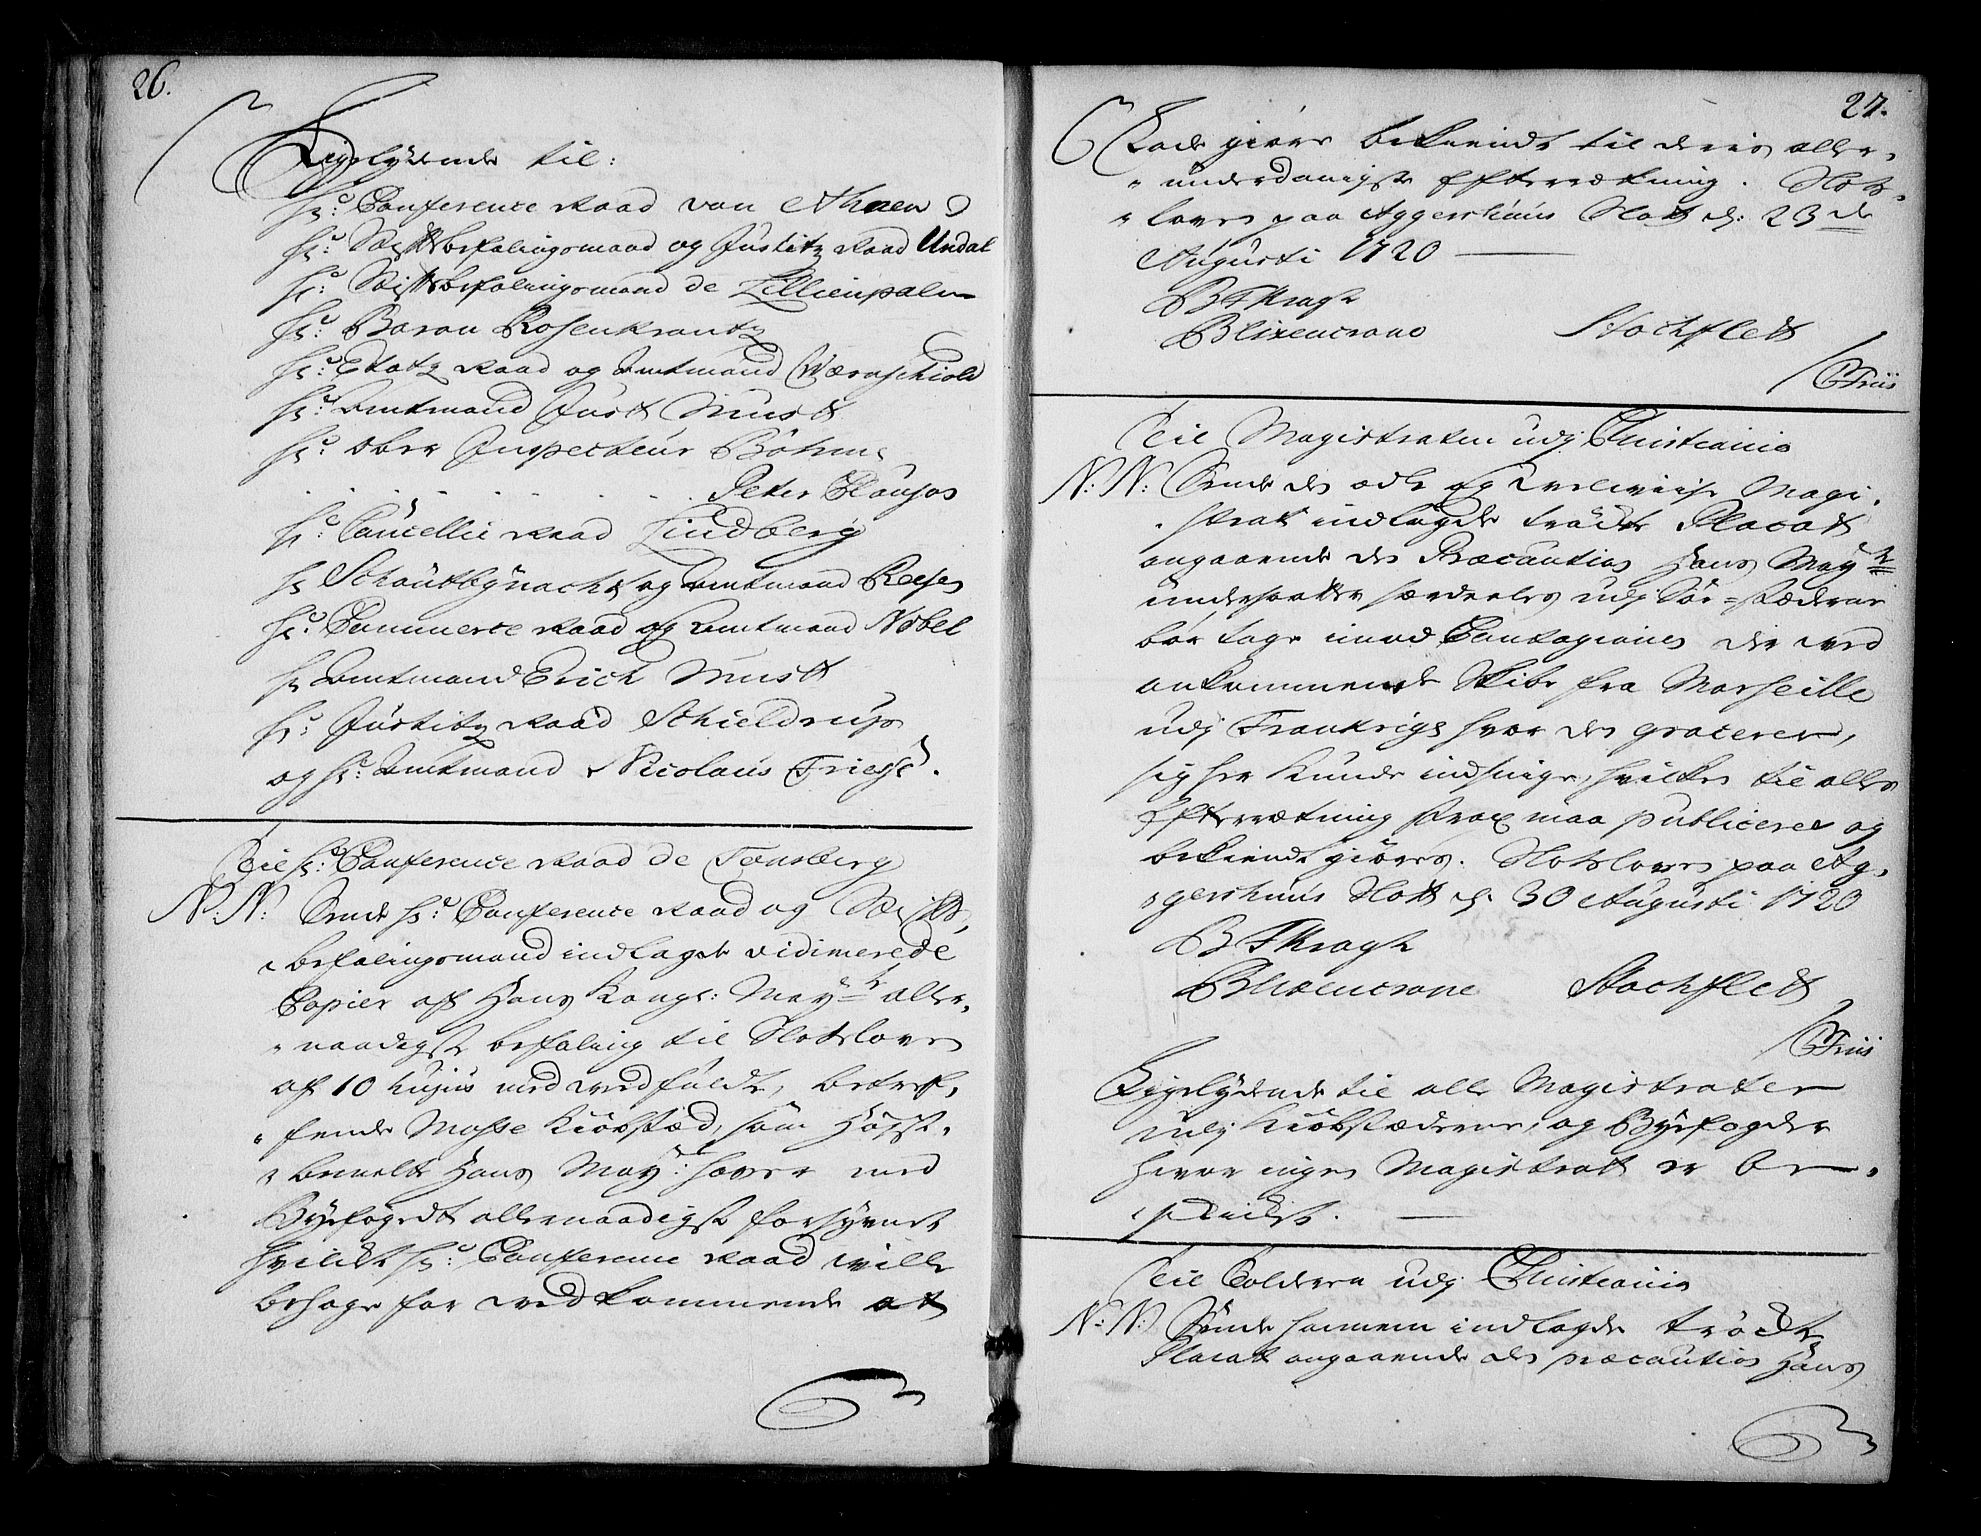 26.
Ligelydende til:
Hr: Conference Raad von Ahnen
Hr: Stiftsbefalingsmand og Justitz Raad Undal
Hr: Stiftsbefalingsmand de Lillienpalm
Hr: Baron Rosenkrantz
Hr: Etatz Raad og Amtmand Wærnschiold
Hr: Amtmand Just Must
Hr: Ober Inspecteur Böhm
Peter Clausøn
Hr: Cancellie Raad Lindberg
Hr Schoutbynacht og Amtmand Reeses
Hr: Commerce Raad og Amtmand Nobel
Hr Amtmand Erich Must
Hr: Justitz Raad Schieldrup
og Hr: Amtmand Nicolaus Friese.
Til Hr: Conference Raad de Tonsberg
N: N: Sende Hr: Conference Raad og Stifts-
befalingsmand indlagde vidimerede
Copier af Hans Kongl: Mayts aller-
naadigste befaling til Slotsloven
af 10 hujus med vedføldt, betref-
fende Mosse Kiöbstæd, som Høyst-
bemelte Hans Mayt: haver med
Byefogedt allernaadigst forsynet
hvilket Hr: Conference Raad wille
behage for vedkommende at
27.
Lade giøre bekiendt til deris aller-
underdanigste Efterretning. Slots-
loven paa Aggershuus Slott d: 23de
Augusti 1720
B F Kragh
Blixencrone Stochflett
/ C Friis
Til Magistraten udj Christiania
N: N: Sende des ædle og velwiise Magi-
strat indlagde trögte Placat
angaaende des Præcautios Hans Mayts
undersaatter særdeeles udj Söe-stæderne
bør tage imod Contagionen der ved
ankommende Skibe fra Marseille
udj Frankrige hvor den graceret,
sig her kunde indsnige, hvilket til alles
Efterretning strax maa publiceres og
bekiendt giöres. Slotsloven paa Ag-
gershuus Slott d. 30 Augusti 1720
B F Kragh
Blixencrone Stochflett
/ C Friis
Ligelydende til alle Magistrater
udj Kiöbstæderne, og Byefogder
hvor ingen Magistrat er be-
skicket.
Til Tolderen udj Christiania
N: N: Sende hannem indlagde trögte
Placat angaaende des præcautios Hans